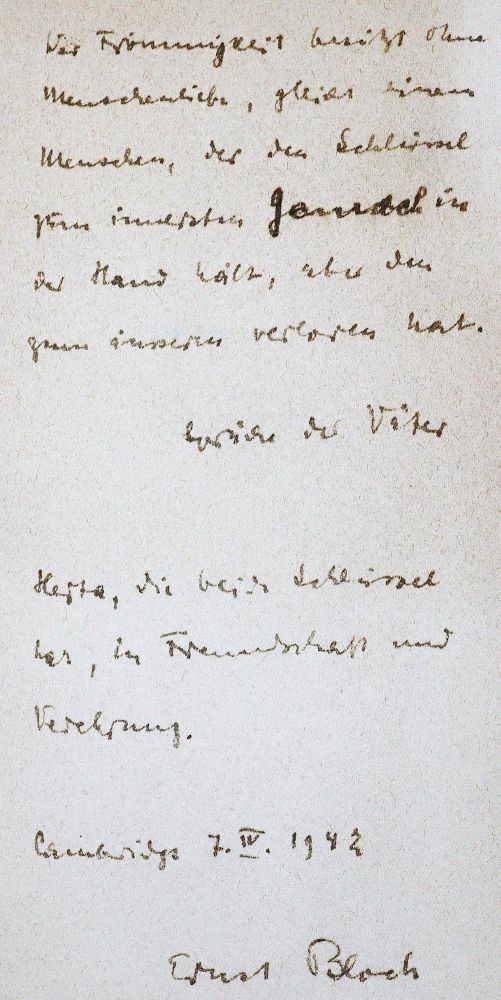 Wer Frömmigkeit besitzt ohne
Menschenliebe, gleicht einem
Menschen, der den Schlüssel
zum innersten Gemach in
der Hand hält, aber den
zum äusseren verloren hat.
Sprüche der Väter
Herta, die beide Schlüssel
hat, in Freundschaft und
Verehrung.
Cambridge 7. IV. 1942
Ernst Bloch